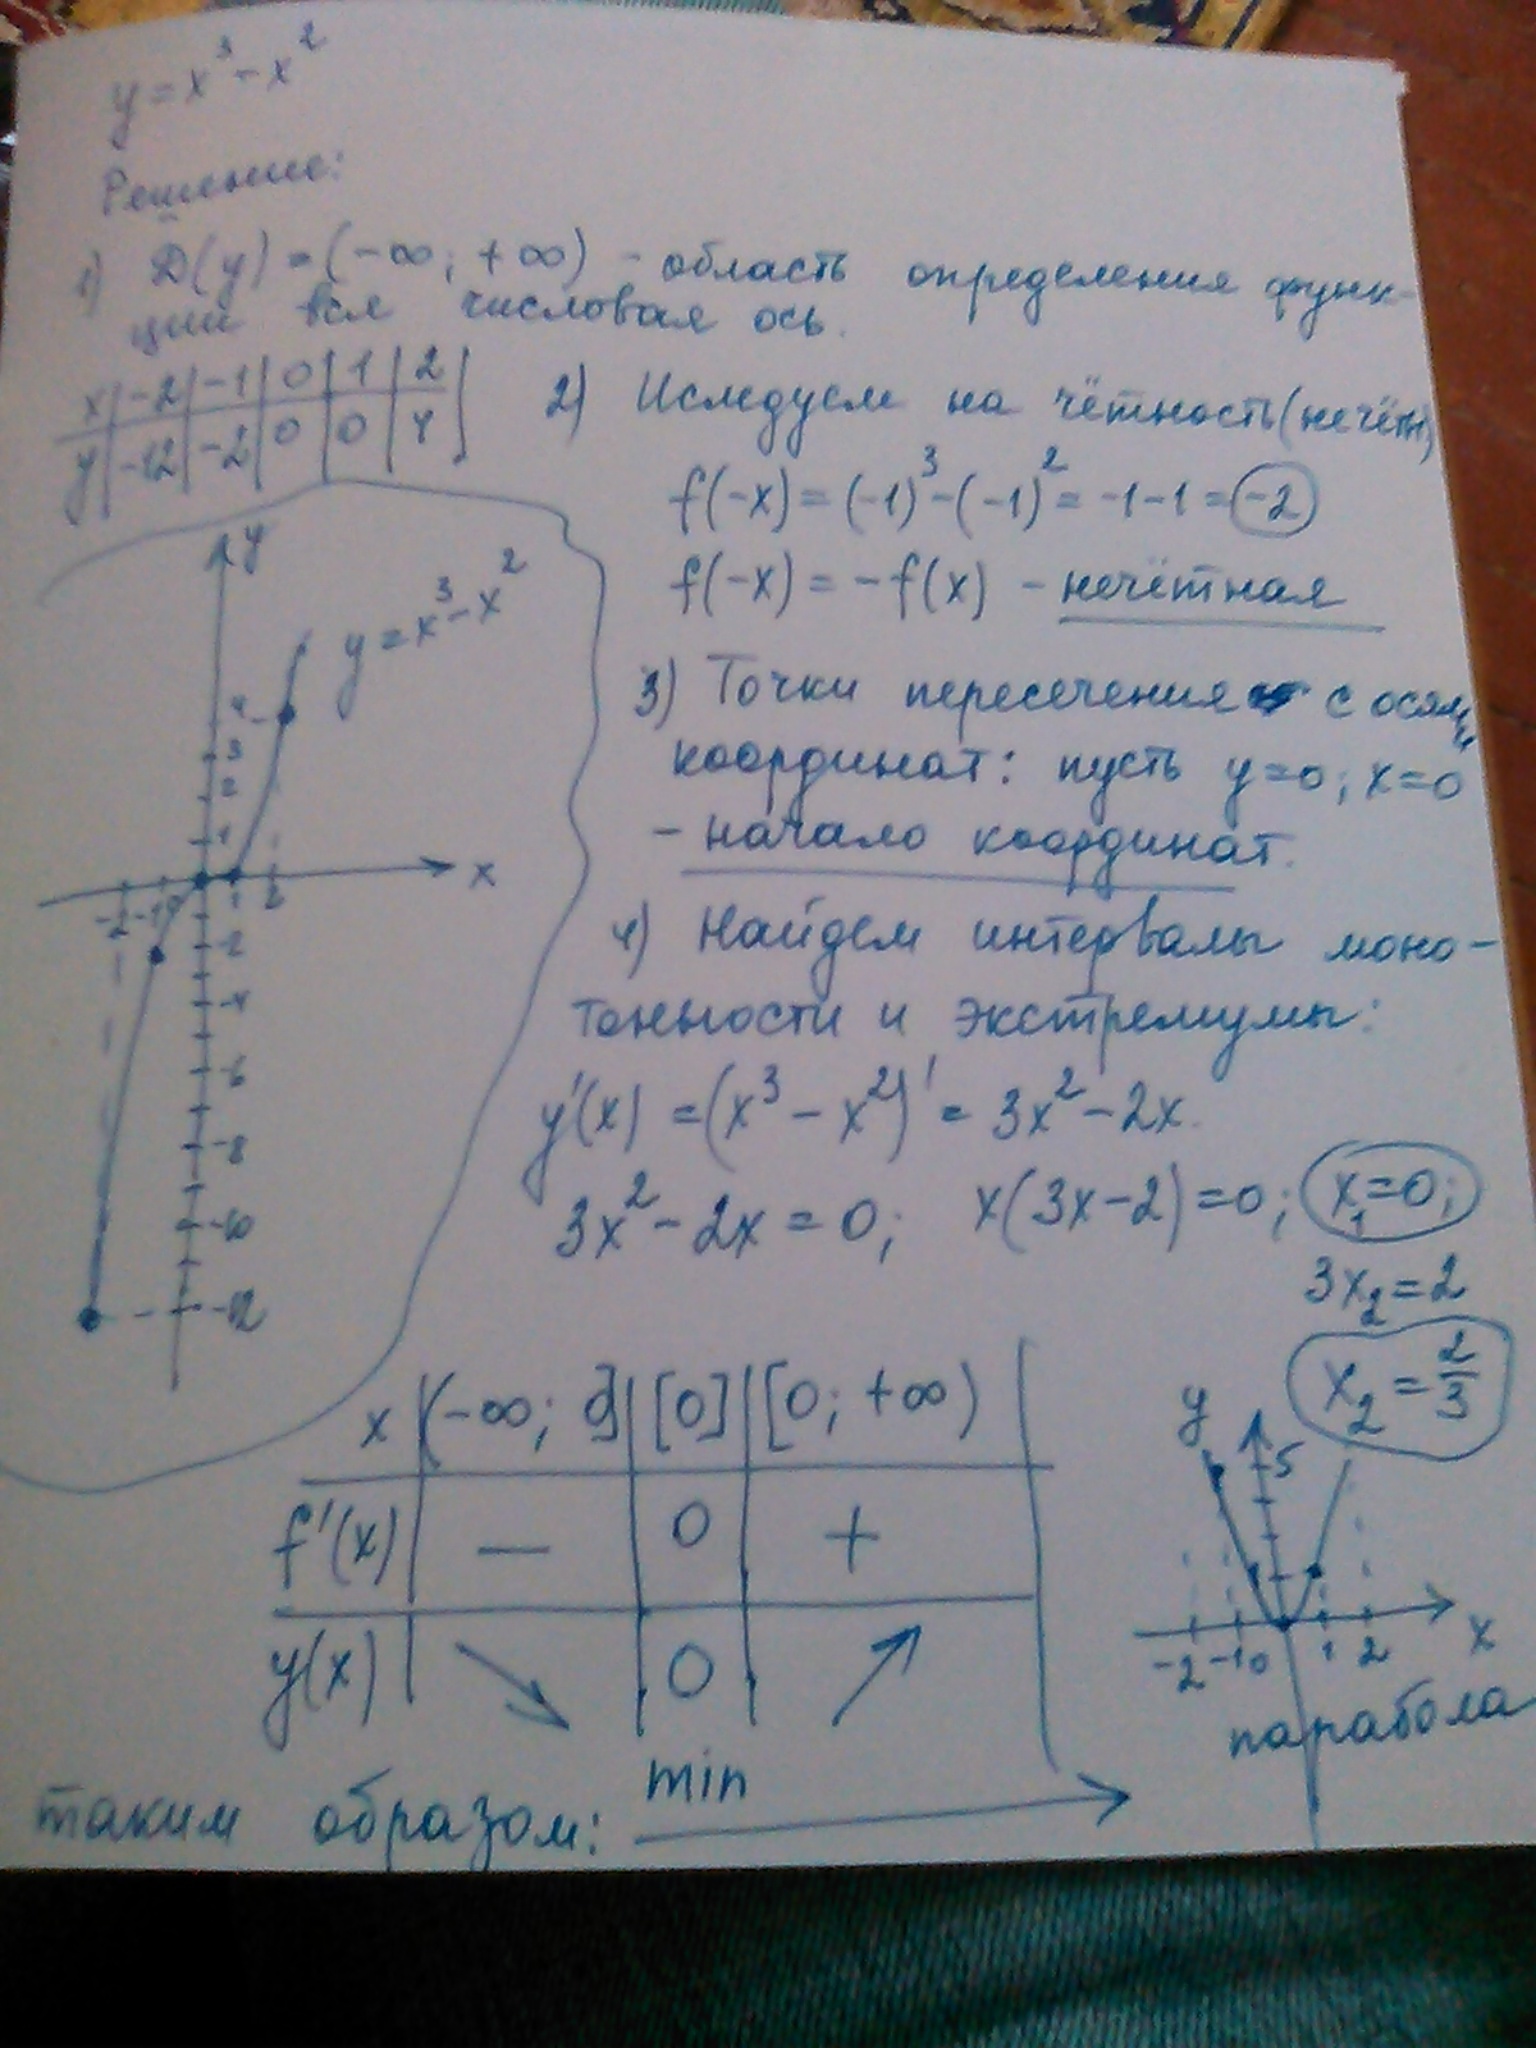 y = x³ - x²
Решение:
1) D(y) = (-∞; +∞) - область определения функ-
ции вся числовая ось.
x | -2 | -1 | 0 | 1 | 2
y | -12 | -2 | 0 | 0 | 4
2) Иследуем на чётность (нечётн)
f(-x) = (-1)³ - (-1)² = -1 - 1 = -2
f(-x) = -f(x) - нечётная
3) Точки пересечения с осями
координат: пусть y=0; x=0
- начало координат.
4) Найдем интервалы моно-
тонности и экстремумы:
y'(x) = (x³ - x²)' = 3x² - 2x.
3x² - 2x = 0; x(3x-2) = 0; x₁=0;
3x₂ = 2
x₂ = 2/3
y
y = x³ - x²
4
3
2
1
x
-2 -1 0 1 2
-2
-4
-6
-8
-10
-12
x | (-∞; 0] | [0] | [0; +∞)
f'(x) | — | 0 | +
y(x) | ↘ | 0 | ↗
min
y
5
-2 -1 0 1 2 x
парабола
таким образом: →